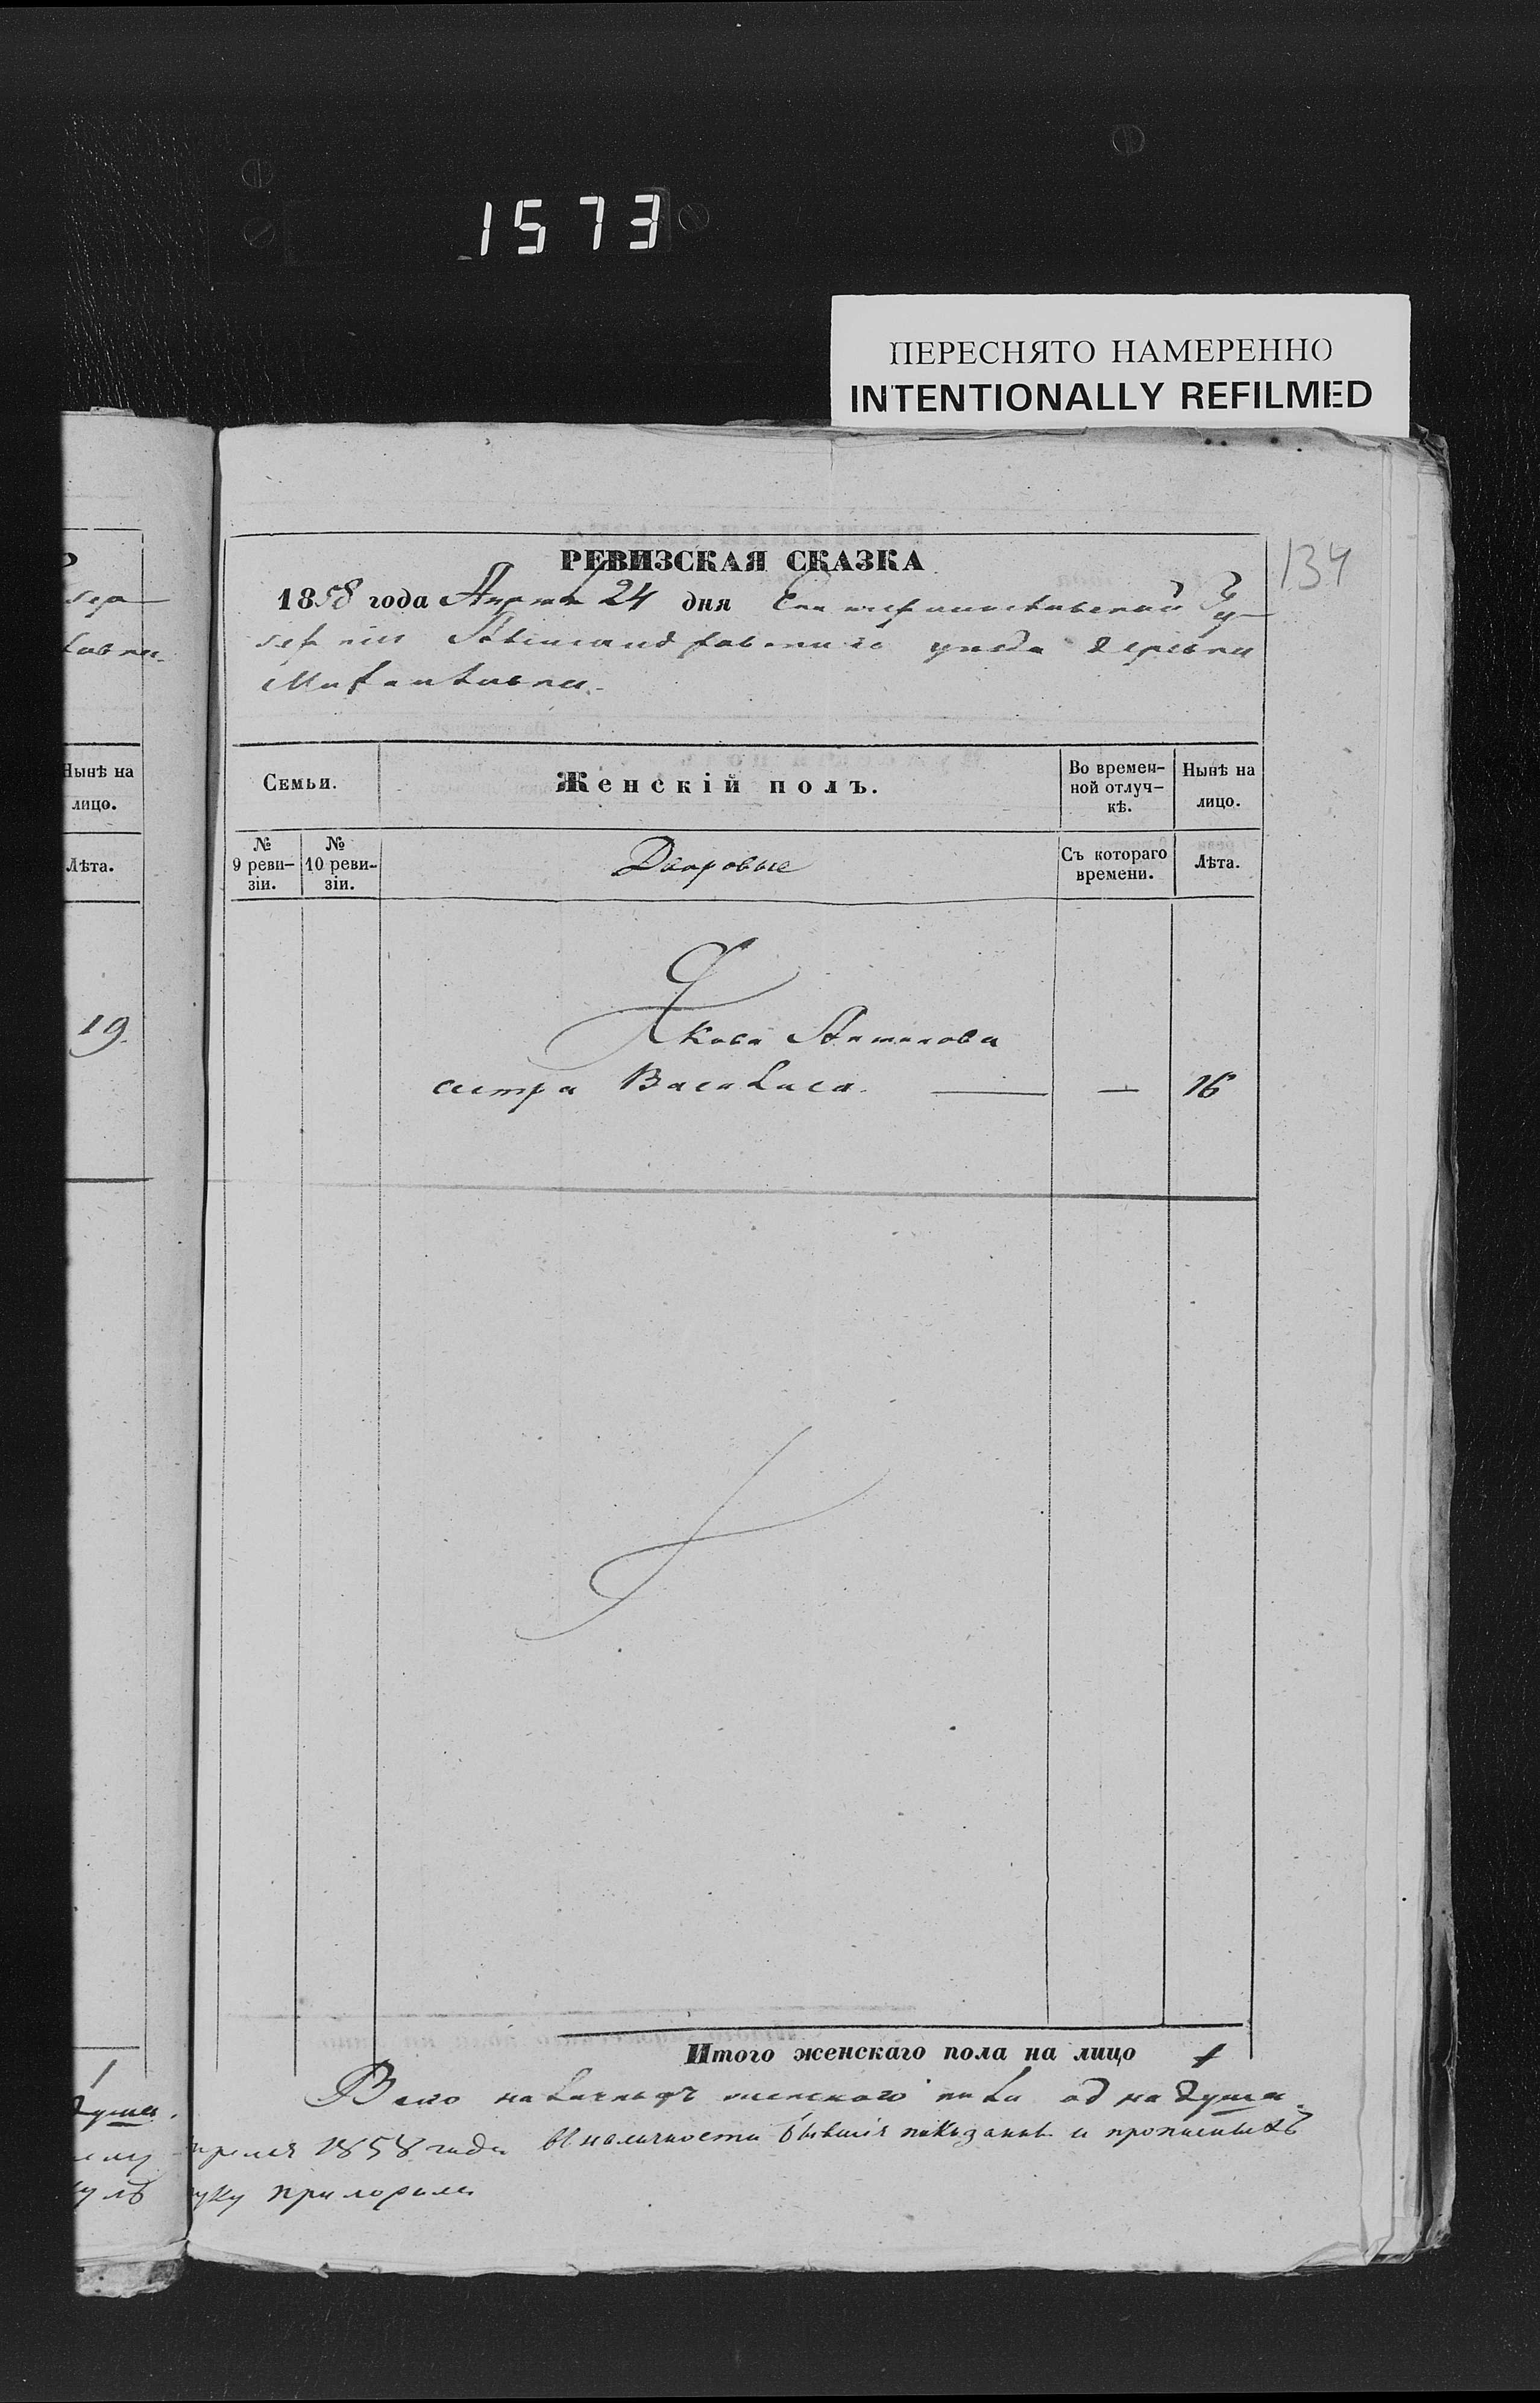 1573
ПЕРЕСНЯТО НАМЕРЕННО
INTENTIONALLY REFILMED
134
РЕВИЗСКАЯ СКАЗКА
1858 года Апреля 24 дня Екатеринославской Гу-
берніи Александровского уезда деревни
Нынѣ на
лицо.
Лѣта.
19.
1
душа.
Семьи.
Женскій полъ.
Во времен-
ной отлуч-
кѣ.
Нынѣ на
лицо.
№
9 реви-
зіи.
№
10 реви-
зіи.
Дворовые
Съ котораго
времени.
Лѣта.
Якова Антонова
сестра Василиса — — 16
Итого женскаго пола на лицо 1
Всего наличныхъ женского пола одна душа.
преля 1858 года наличности бывшія показаны и прописныхъ
уку приложилъ